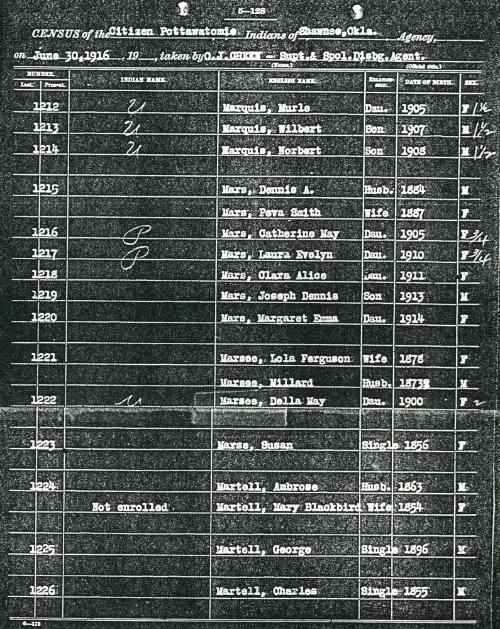 5—128
CENSUS of the Citizen Pottawatomie Indians of Shawnee, Okla. Agency,
on June 30, 1916, 19 , taken by O.J.GREEN - Supt.& Spcl.Disbg.Agent.
(Name.) (Official title.)
NUMBER. INDIAN NAME. ENGLISH NAME. RELATIONSHIP. DATE OF BIRTH. SEX.
Last. Present.
1212 U Marquis, Murle Dau. 1905 F
1213 U Marquis, Wilbert Son 1907 M 1/2
1214 U Marquis, Norbert Son 1908 M 1/2
1215 Mars, Dennis A. Husb. 1884 M
Mars, Peva Smith Wife 1887 F
1216 P Mars, Catherine May Dau. 1905 F 3/4
1217 P Mars, Laura Evelyn Dau. 1910 F 3/4
1218 Mars, Clara Alice Dau. 1911 F
1219 Mars, Joseph Dennis Son 1913 M
1220 Mars, Margaret Emma Dau. 1914 F
1221 Marsee, Lola Ferguson Wife 1878 F
Marsee, Millard Husb. 1873 M
1222 U Marsee, Della May Dau. 1900 F
1223 Marse, Susan Single 1856 F
1224 Martell, Ambrose Husb. 1863 M
Not enrolled Martell, Mary Blackbird Wife 1854 F
1225 Martell, George Single 1896 M
1226 Martell, Charles Single 1855 M
6—128